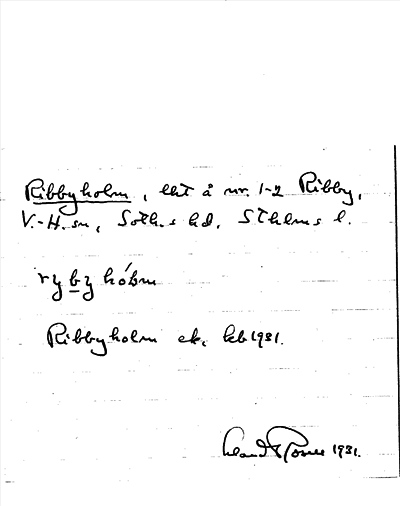 Ribbyholm, lht å nr. 1-2 Ribby,
V.-H. sn, Soth.s hd, Sthlms l.
ry by hóbm
Ribbyholm ek. kb 1931.
1931.